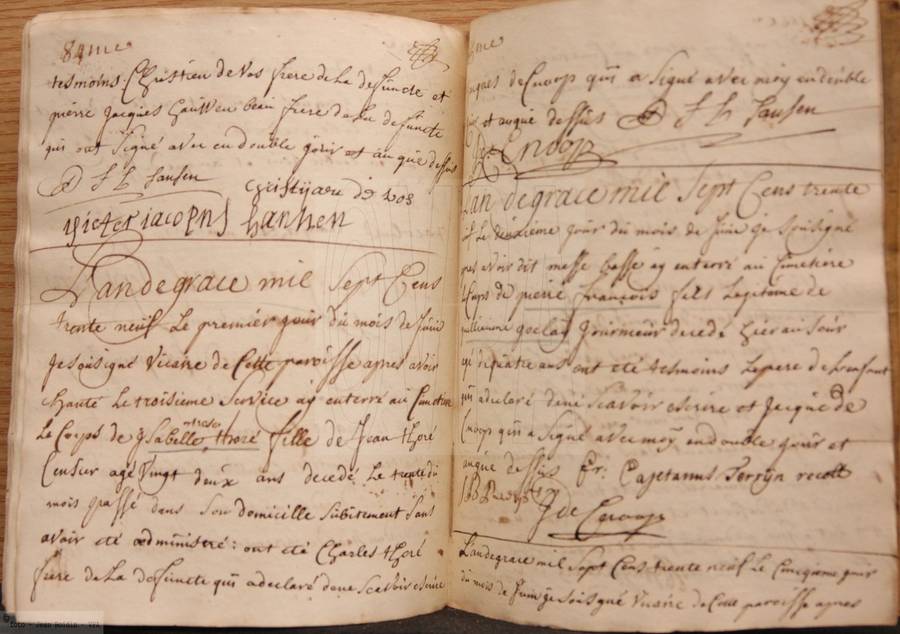 84me
tesmoins Christien de Vos frere de La defuncte et
pierre Jacques hauwen beau frere de La defuncte
qui ont Signé avec en double jour et an que dessus
J L Jansen Cristijaen de vos
Victer iacopus
L'an de grace mil Sept Cens
trente neuf Le premier jour du mois de Juin
Je Soisigné Vicaire de Cette paroisse apres avoir
chanté Le troisieme Service ay enterré au Cimetiere
Le Corps de Isabelle thoré fille de Jean thoré
Censier agé Vingt deux ans decedé Le trente du
mois passé dans Son domicille Subitement Sans
avoir eté administré : ont eté Charles thoré
frere de La defuncte qui a declaré de ne Scavoir escrire
me
ques de Cnoop qui a Signé avec moy en double
et an que dessus J L Jansen
J de Cnoop
L'an de grace mil Sept Cens trente
Le deuxieme jour du mois de Juin je Soisigné
apres avoir dit messe basse ay enterré au Cimetiere
Corps de pierre françois fils Legitime de
decedé hier au Soir
agé de quatre ans ont eté tesmoins Le pere de L'enfant
qui a declaré de ne Scavoir escrire et Jacque de
Cnoop qui a Signé avec moy en double jour et
an que dessus fr. Cajetanus recolt
J de Cnoop
L'an de grace mil Sept Cens trente neuf Le Cincqieme jour
du mois de Juin je Soisigné Vicaire de Cette paroisse apres
foto - Jean Boidin - VVF